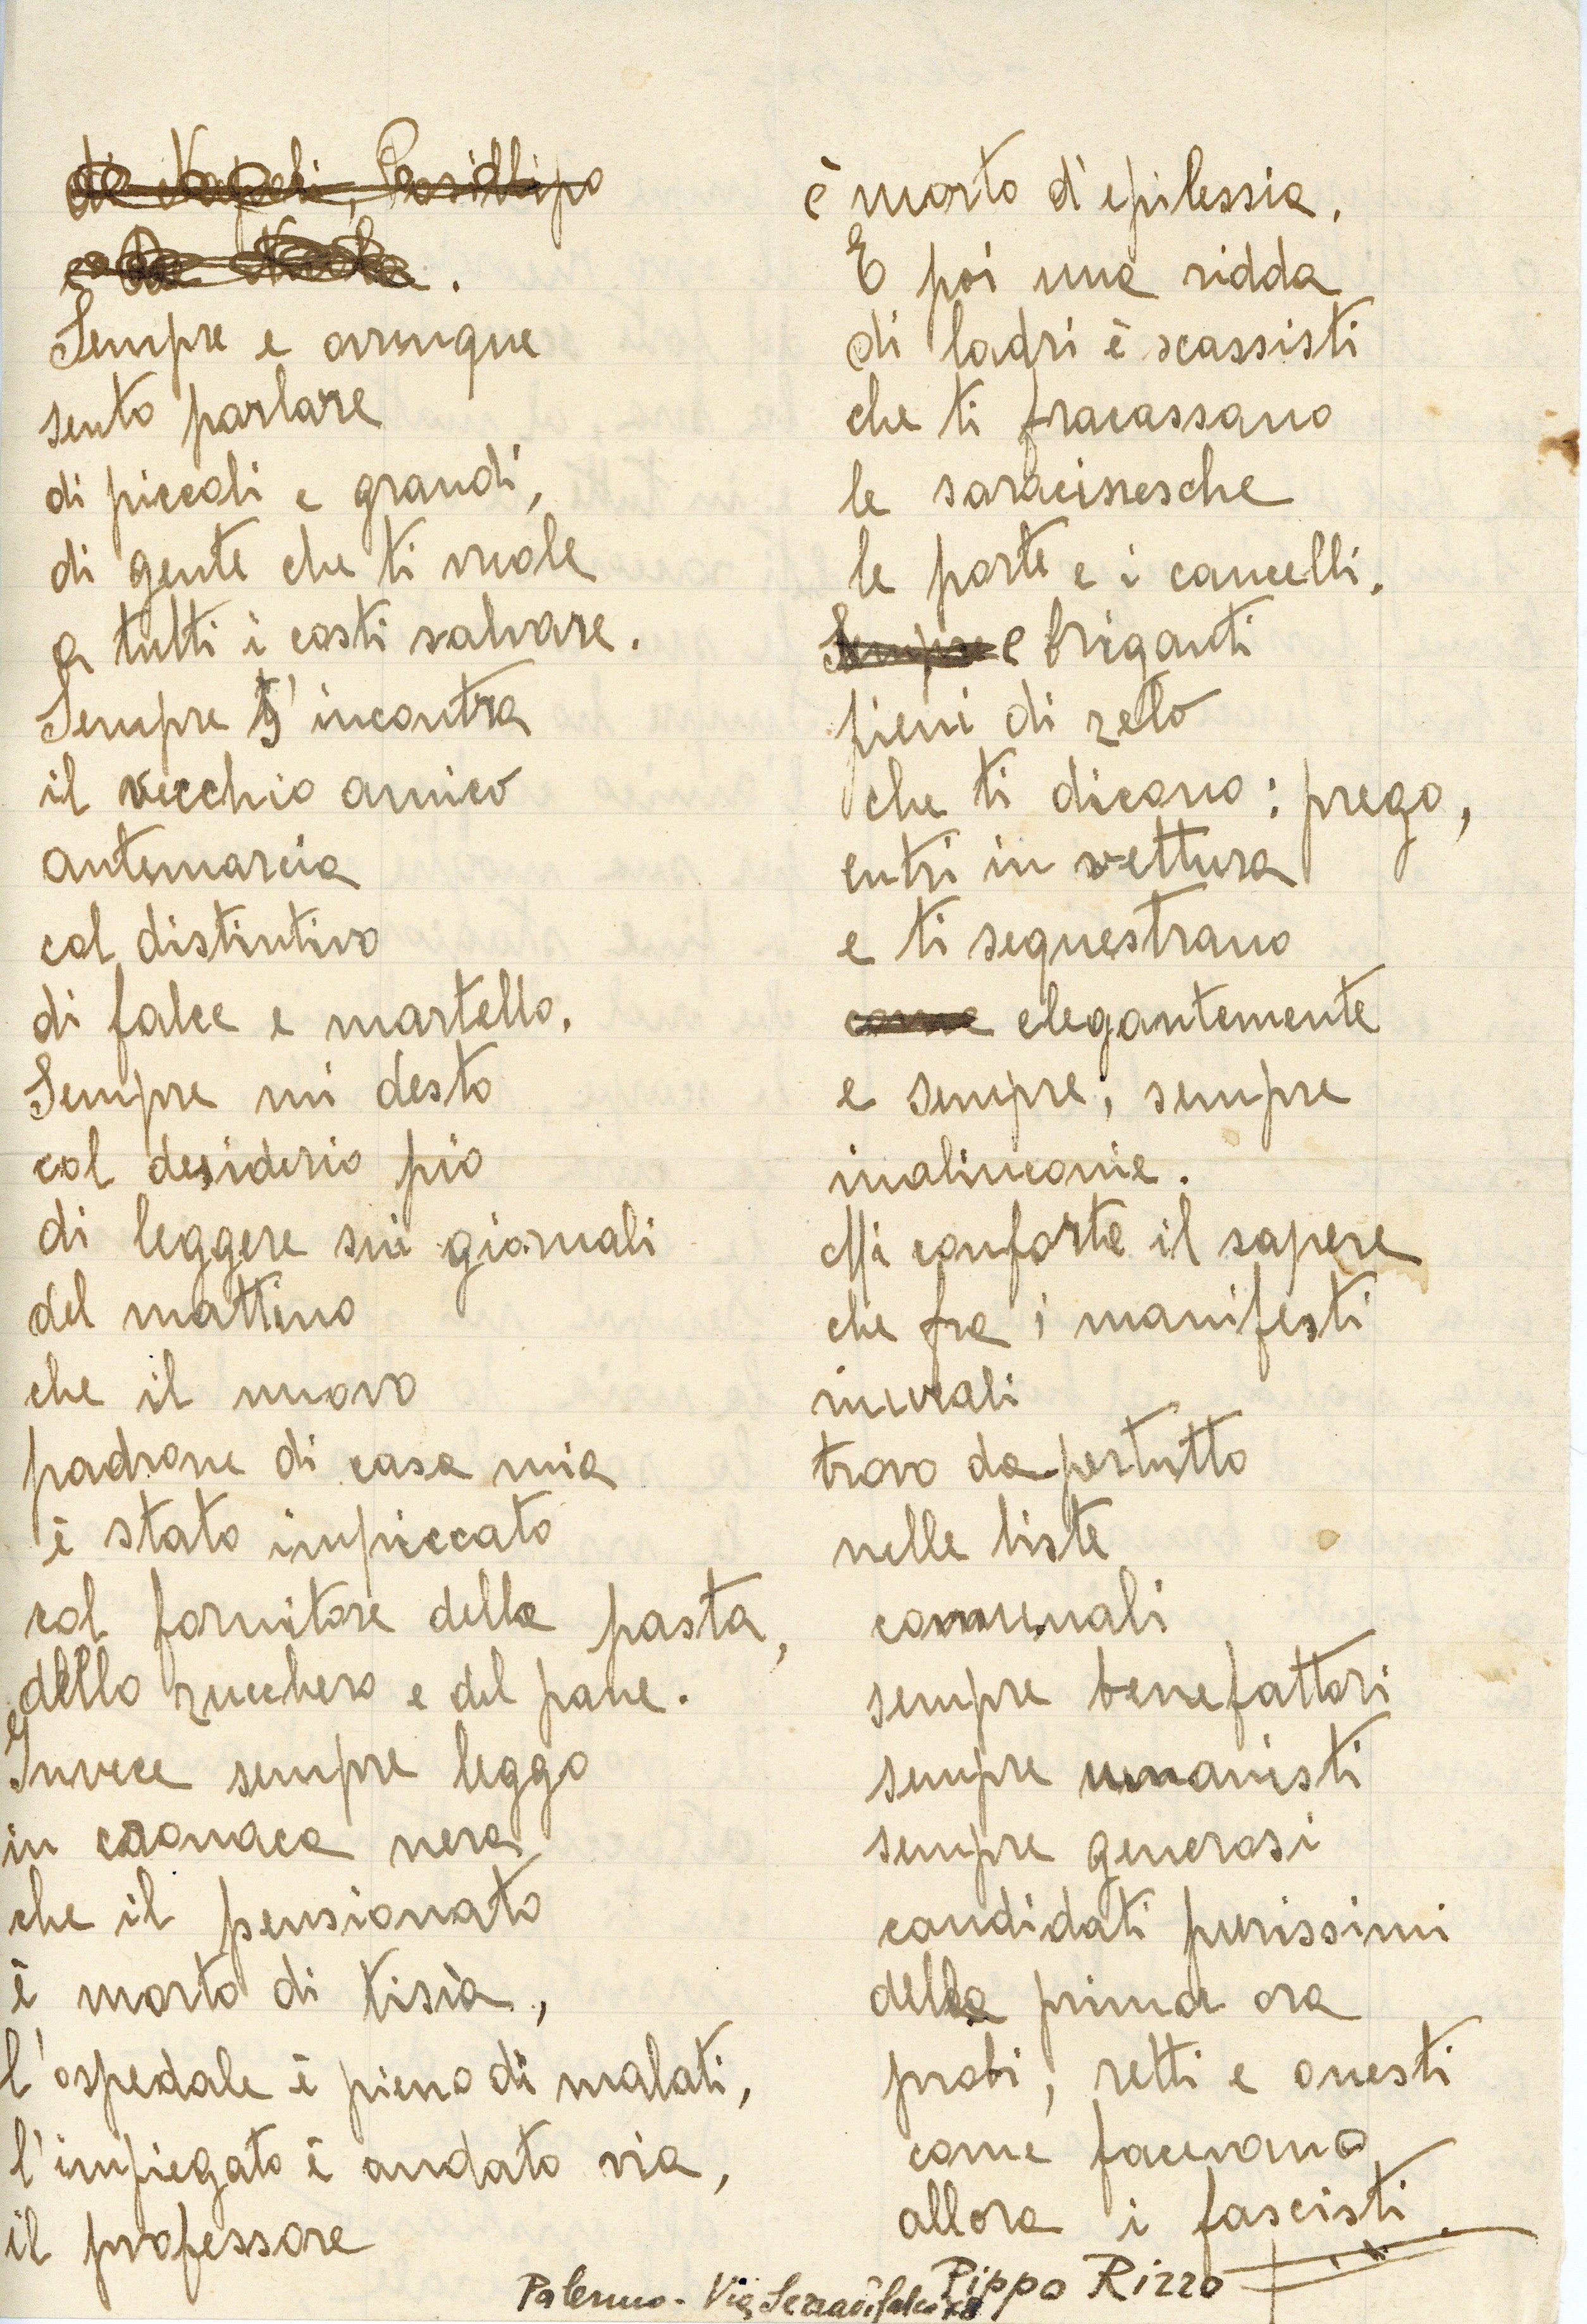 da Napoli, Posillipo
Sempre e ovunque
sento parlare
di piccoli e grandi,
di gente che ti vuole
a tutti i costi salvare.
Sempre t'incontra
il vecchio amico
antemarcia
col distintivo
di falce e martello.
Sempre mi desto
col desiderio pio
di leggere sui giornali
del mattino
che il nuovo
padrone di casa mia
è stato impiccato
col fornitore della pasta,
dello zucchero e del pane.
Invece sempre leggo
in cronaca nera
che il pensionato
è morto di tisia,
l'ospedale è pieno di malati,
l'impiegato è andato via,
il professore
è morto d'epilessia.
E poi una ridda
di ladri è scassisti
che ti fracassano
le saracinesche
le porte e i cancelli.
Sempre e briganti
pieni di zelo
che ti dicono: prego,
entri in vettura
e ti sequestrano
come elegantemente
e sempre, sempre
malinconie.
Mi conforta il sapere
che fra i manifesti
murali
trovo da pertutto
nelle liste
comunali
sempre benefattori
sempre umanisti
sempre generosi
candidati purissimi
della prima ora
probi, retti e onesti
come facevano
allora i fascisti.
Pippo Rizzo
Palermo - Via Serradifalco